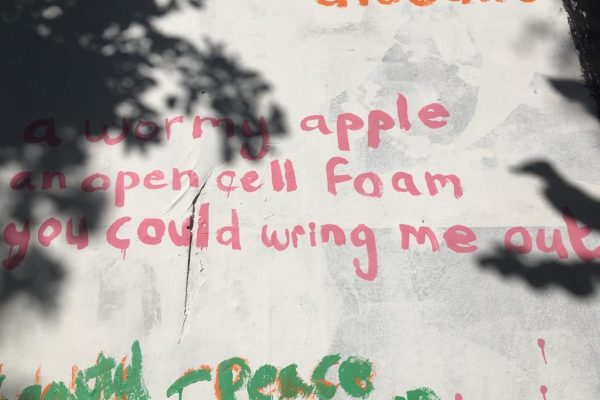 a wormy apple
an open cell foam
you could wring me out
- Peace